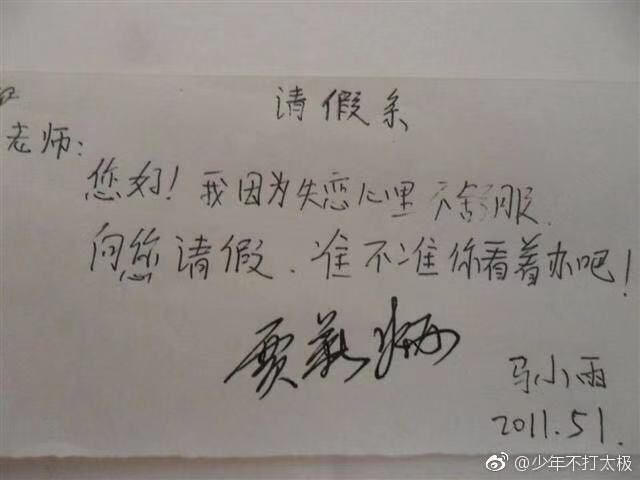 请假条
老师:
您好!我因为失恋心里不舒服.
向您请假.准不准你看着办吧!
马小雨
2011.51.
@少年不打太极